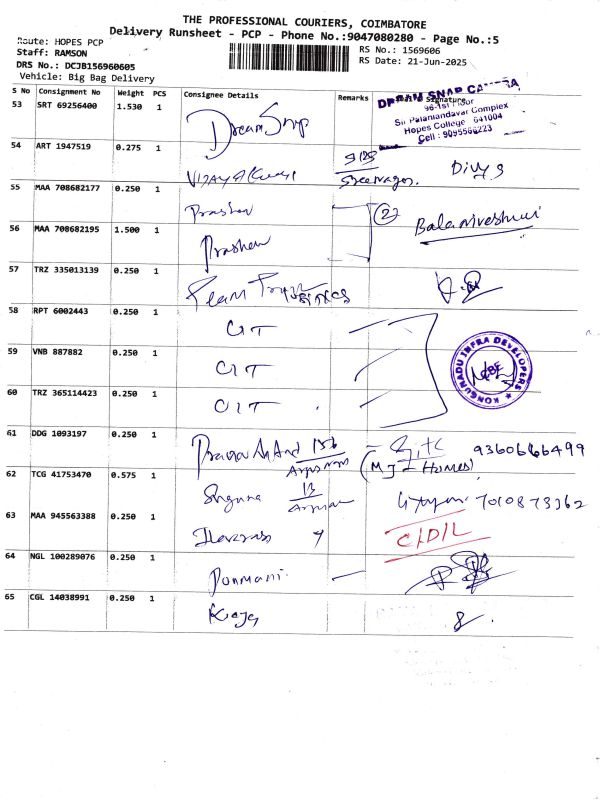 THE PROFESSIONAL COURIERS, COIMBATORE
Delivery Runsheet - PCP - Phone No.:9047080280 - Page No.:5
Route: HOPES PCP
Staff: RAMSON
DRS No.: DCJB156960605
Vehicle: Big Bag Delivery
RS No.: 1569606
RS Date: 21-Jun-2025
S No Consignment No Weight PCS Consignee Details Remarks Signature
53 SRT 69256400 1.530 1 Dream Snap
DREAM SNAP
96-1st Floor
Palaniandavar Complex
Hopes College 641004
Cell : 9095566223
54 ART 1947519 0.275 1 Vijaya Kumar
55 MAA 708682177 0.250 1 Prashan (2)
56 MAA 708682195 1.500 1 Prashan
57 TRZ 335013139 0.250 1 Team Trans
58 RPT 6002443 0.250 1 CIT
59 VNB 887882 0.250 1 CIT
KONGUNADU INFRA DEVELOPERS
60 TRZ 365114423 0.250 1 CIT
61 DDG 1093197 0.250 1 9360666499
Homes)
62 TCG 41753470 0.575 1 7010873362
63 MAA 945563388 0.250 1
64 NGL 100289076 0.250 1 Ponmani
65 CGL 14038991 0.250 1 Koja